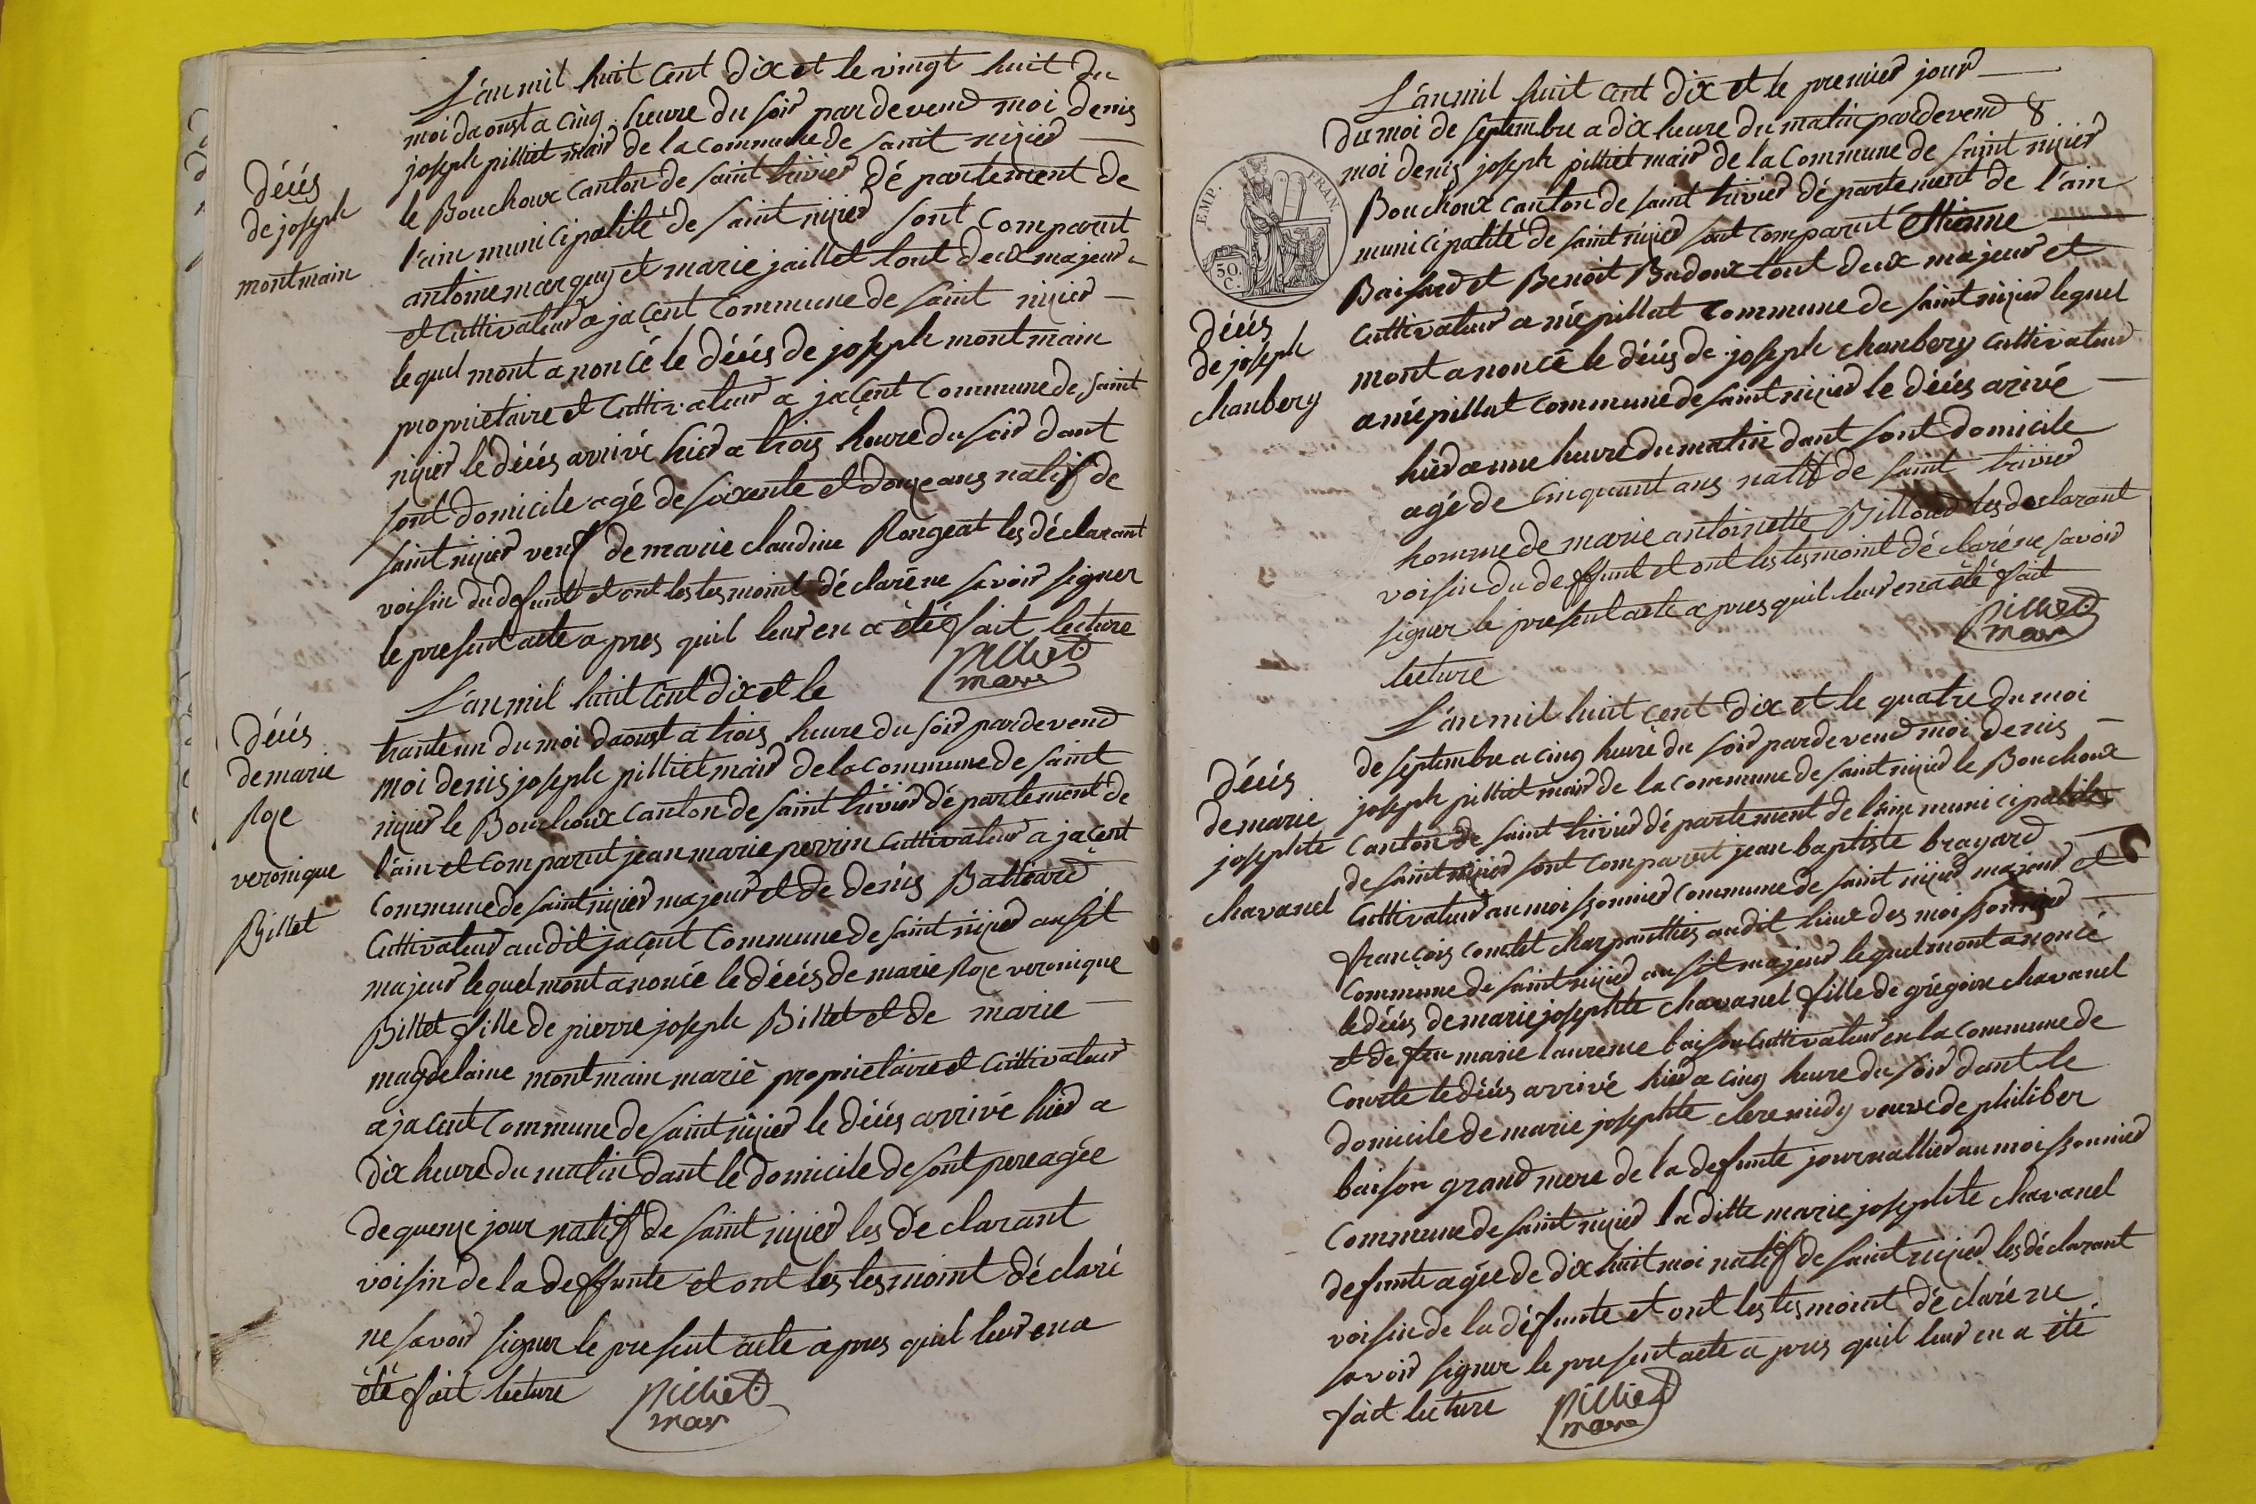 L'an mil huit cent dix et le vingt huit du
moi daoust a cinq heure du soir pardevend moi denis
joseph pilliet mair de la commune de saint nizier
le Bouchoux canton de saint trivier dé partement de
l'ain municipalité de saint nizier sont comparut
antoine marquis et marie jaillet tout deux majeur
et Cuttivateur a jacent Commune de saint nizier
lequel mont anoncé le décés de joseph montmain
proprietaire et Cuttivateur a jacent Commune de saint
nizier le décés arrivé hier a trois heure du soir dant
sont domicile agé de soixente et douze ans natif de
saint nizier veuf de marie claudine Rongeat les déclarant
voisin du defunt et ont les tesmoint déclaré ne savoir signer
le present acte a pres quil leur en a été fait lecture
pilliet
mair
décés
de joseph
montmain
L'an mil huit cent dix et le
trante un du moi daoust a trois heure du soir pardevend
moi denis joseph pilliet mair de la commune de saint
nizier le Bouchoux canton de saint trivier dé partement de
l'ain et comparut jean marie perrin cuttivateur a jacent
Commune de saint nizier majeur et de denis Battiard
Cuttivateur audit jacent Commune de saint nizier ausit
majeur lequel mont anoncé le décés de marie Roze veronique
Billet fille de pierre joseph Billet et de marie
magdelaine montmain marié proprietaire et Cuttivateur
a jacent Commune de saint nizier le décés arrivé hier a
dix heure du matin dant le domicile de sont pere agée
de quenze jour natif de saint nizier les déclarant
voisin de la deffunte et ont les tesmoint déclaré
ne savoir signer le present acte apres quil leur en a
été fait lecture
pilliet
mair
décés
de marie
Roze
veronique
Billet
L'an mil huit cent dix et le premier jour
du moi de septembre a dix heure du matin pardevend 8
moi denis joseph pilliet mair de la Commune de saint nizier
Bouchoux canton de saint trivier dé partement de l'ain
municipalité de saint nizier sont comparut Ettienne
Baisard et Benoit Badoux tout deux majeur et
Cuttivateur a mépillat Commune de saint nizier lequel
mont anoncé le décés de joseph chanbery Cuttivateur
a mépillat commune de saint nizier le décés arivé
hier a une heure du matin dant sont domicile
agé de cinquant ans natif de saint trivier
homme de marie antoinette Billoud les declarant
voisin du deffunt et ont les tesmoint déclaré ne savoir
signer le present acte a pres quil leur en a été fait
lecture
pilliet
mair
EMP. FRAN.
50
C.
décés
de joseph
chanbery
L'an mil huit cent dix et le quatre du moi
de septembre a cinq heure du soir pardevend moi denis
joseph pilliet mair de la commune de saint nizier le Bouchoux
Canton de saint trivier dé partement de l'ain municipalité
de saint nizier sont comparut jean baptiste brayard
Cuttivateur au moissonnier commune de saint nizier majeur et
françois comlet charpanttier audit lieux des moissonnier
Commune de saint nizier ausit majeur lequel mont anoncé
le décés de marie josephte chavanel fille de grégoire chavanel
et de feu marie laurence baison Cuttivateur en la commune de
Courte le décés arrivé hier a cinq heure du soir dant le
domicile de marie josephte cleremidy veuve de philiber
baison grand mere de la defunte journallier au moissonnier
Commune de saint nizier la ditte marie josephte chavanel
defunte agée de dix huit moi natif de saint nizier les déclarant
voisin de la défunte et ont les tesmoint déclaré ne
savoir signer le present acte a pres quil leur en a été
fait lecture
pilliet
mair
décés
de marie
josephte
chavanel